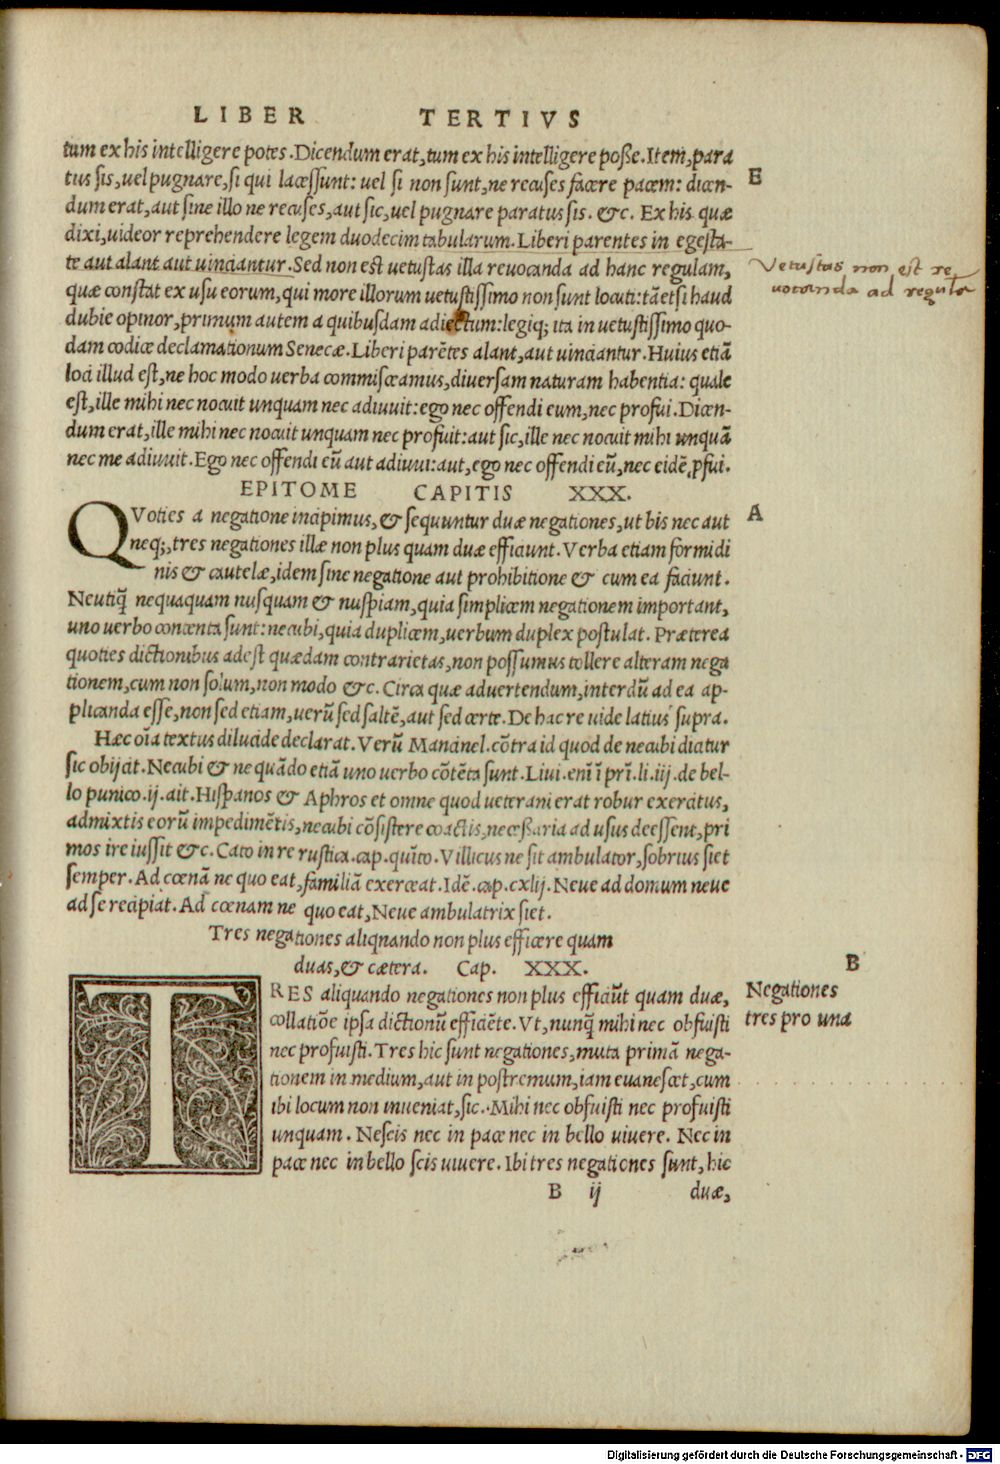 LIBER TERTIVS
tum ex his intelligere potes. Dicendum erat, tum ex his intelligere poße. Item, para
tus sis, uel pugnare, si qui lacessunt: uel si non sunt, ne recuses facere pacem: dicen-
E
dum erat, aut sine illo ne recuses, aut sic, uel pugnare paratus sis. &c. Ex his quæ
dixi, uideor reprehendere legem duodecim tabularum. Liberi parentes in egesta-
te aut alant aut uinciantur. Sed non est uetustas illa reuocanda ad hanc regulam,
Vetustas non est re
uocanda ad regulā
quæ constat ex usu eorum, qui more illorum uetustissimo non sunt locuti: tāetsi haud
dubie opinor, primum autem a quibusdam adiectum: legiq; ita in uetustissimo quo-
dam codice declamationum Senecæ. Liberi parētes alant, aut uinciantur. Huius etiā
loci illud est, ne hoc modo uerba commisceamus, diuersam naturam habentia: quale
est, ille mihi nec nocuit unquam nec adiuuit: ego nec offendi eum, nec profui. Dicen-
dum erat, ille mihi nec nocuit unquam nec profuit: aut sic, ille nec nocuit mihi unquā
nec me adiuuit. Ego nec offendi eū aut adiuui: aut, ego nec offendi eū, nec eidē ꝓfui.
EPITOME CAPITIS XXX.
QVoties a negatione incipimus, & sequuntur duæ negationes, ut bis nec aut
A
neq;, tres negationes illæ non plus quam duæ efficiunt. Verba etiam formidi
nis & cautelæ, idem sine negatione aut prohibitione & cum ea faciunt.
Neutiq̄ nequaquam nusquam & nuspiam, quia simplicem negationem important,
uno uerbo contenta sunt: necubi, quia duplicem, uerbum duplex postulat. Præterea
quoties dictionibus adest quædam contrarietas, non possumus tollere alteram nega
tionem, cum non solum, non modo &c. Circa quæ aduertendum, interdū ad ea ap-
plicanda esse, non sed etiam, uerū sed saltē, aut sed certe. De hac re uide latius supra.
Hæc oīa textus dilucide declarat. Verū Mancinel. cōtra id quod de necubi dicitur
sic obijcit. Necubi & ne quādo etiā uno uerbo cōtēta sunt. Liui. enī ī prī. li. iij. de bel-
lo punico. ij. ait. Hispanos & Aphros et omne quod ueterani erat robur exercitus,
admixtis eorū impedimētis, necubi cōsistere coactis, neceßaria ad usus deessent, pri
mos ire iussit &c. Cato in re rustica. cap. quīto. Villicus ne sit ambulator, sobrius siet
semper. Ad cœnā ne quo eat, familiā exerceat. Idē. cap. cxlij. Neue ad domum neue
ad se recipiat. Ad cœnam ne quo eat, Neue ambulatrix siet.
Tres negationes aliqnando non plus efficere quam
duas, & cætera. Cap. XXX.
B
TRES aliquando negationes non plus efficiūt quam duæ,
Negationes
tres pro una
collatiōe ipsa dictionū efficiēte. Vt, nunq̄ mihi nec obfuisti
nec profuisti. Tres hic sunt negationes, muta primā nega-
tionem in medium, aut in postremum, iam euanescet, cum
ibi locum non inueniat, sic. Mihi nec obfuisti nec profuisti
unquam. Nescis nec in pace nec in bello uiuere. Nec in
pace nec in bello scis uiuere. Ibi tres negationes sunt, hic
B ij duæ,
Digitalisierung gefördert durch die Deutsche Forschungsgemeinschaft - DFG